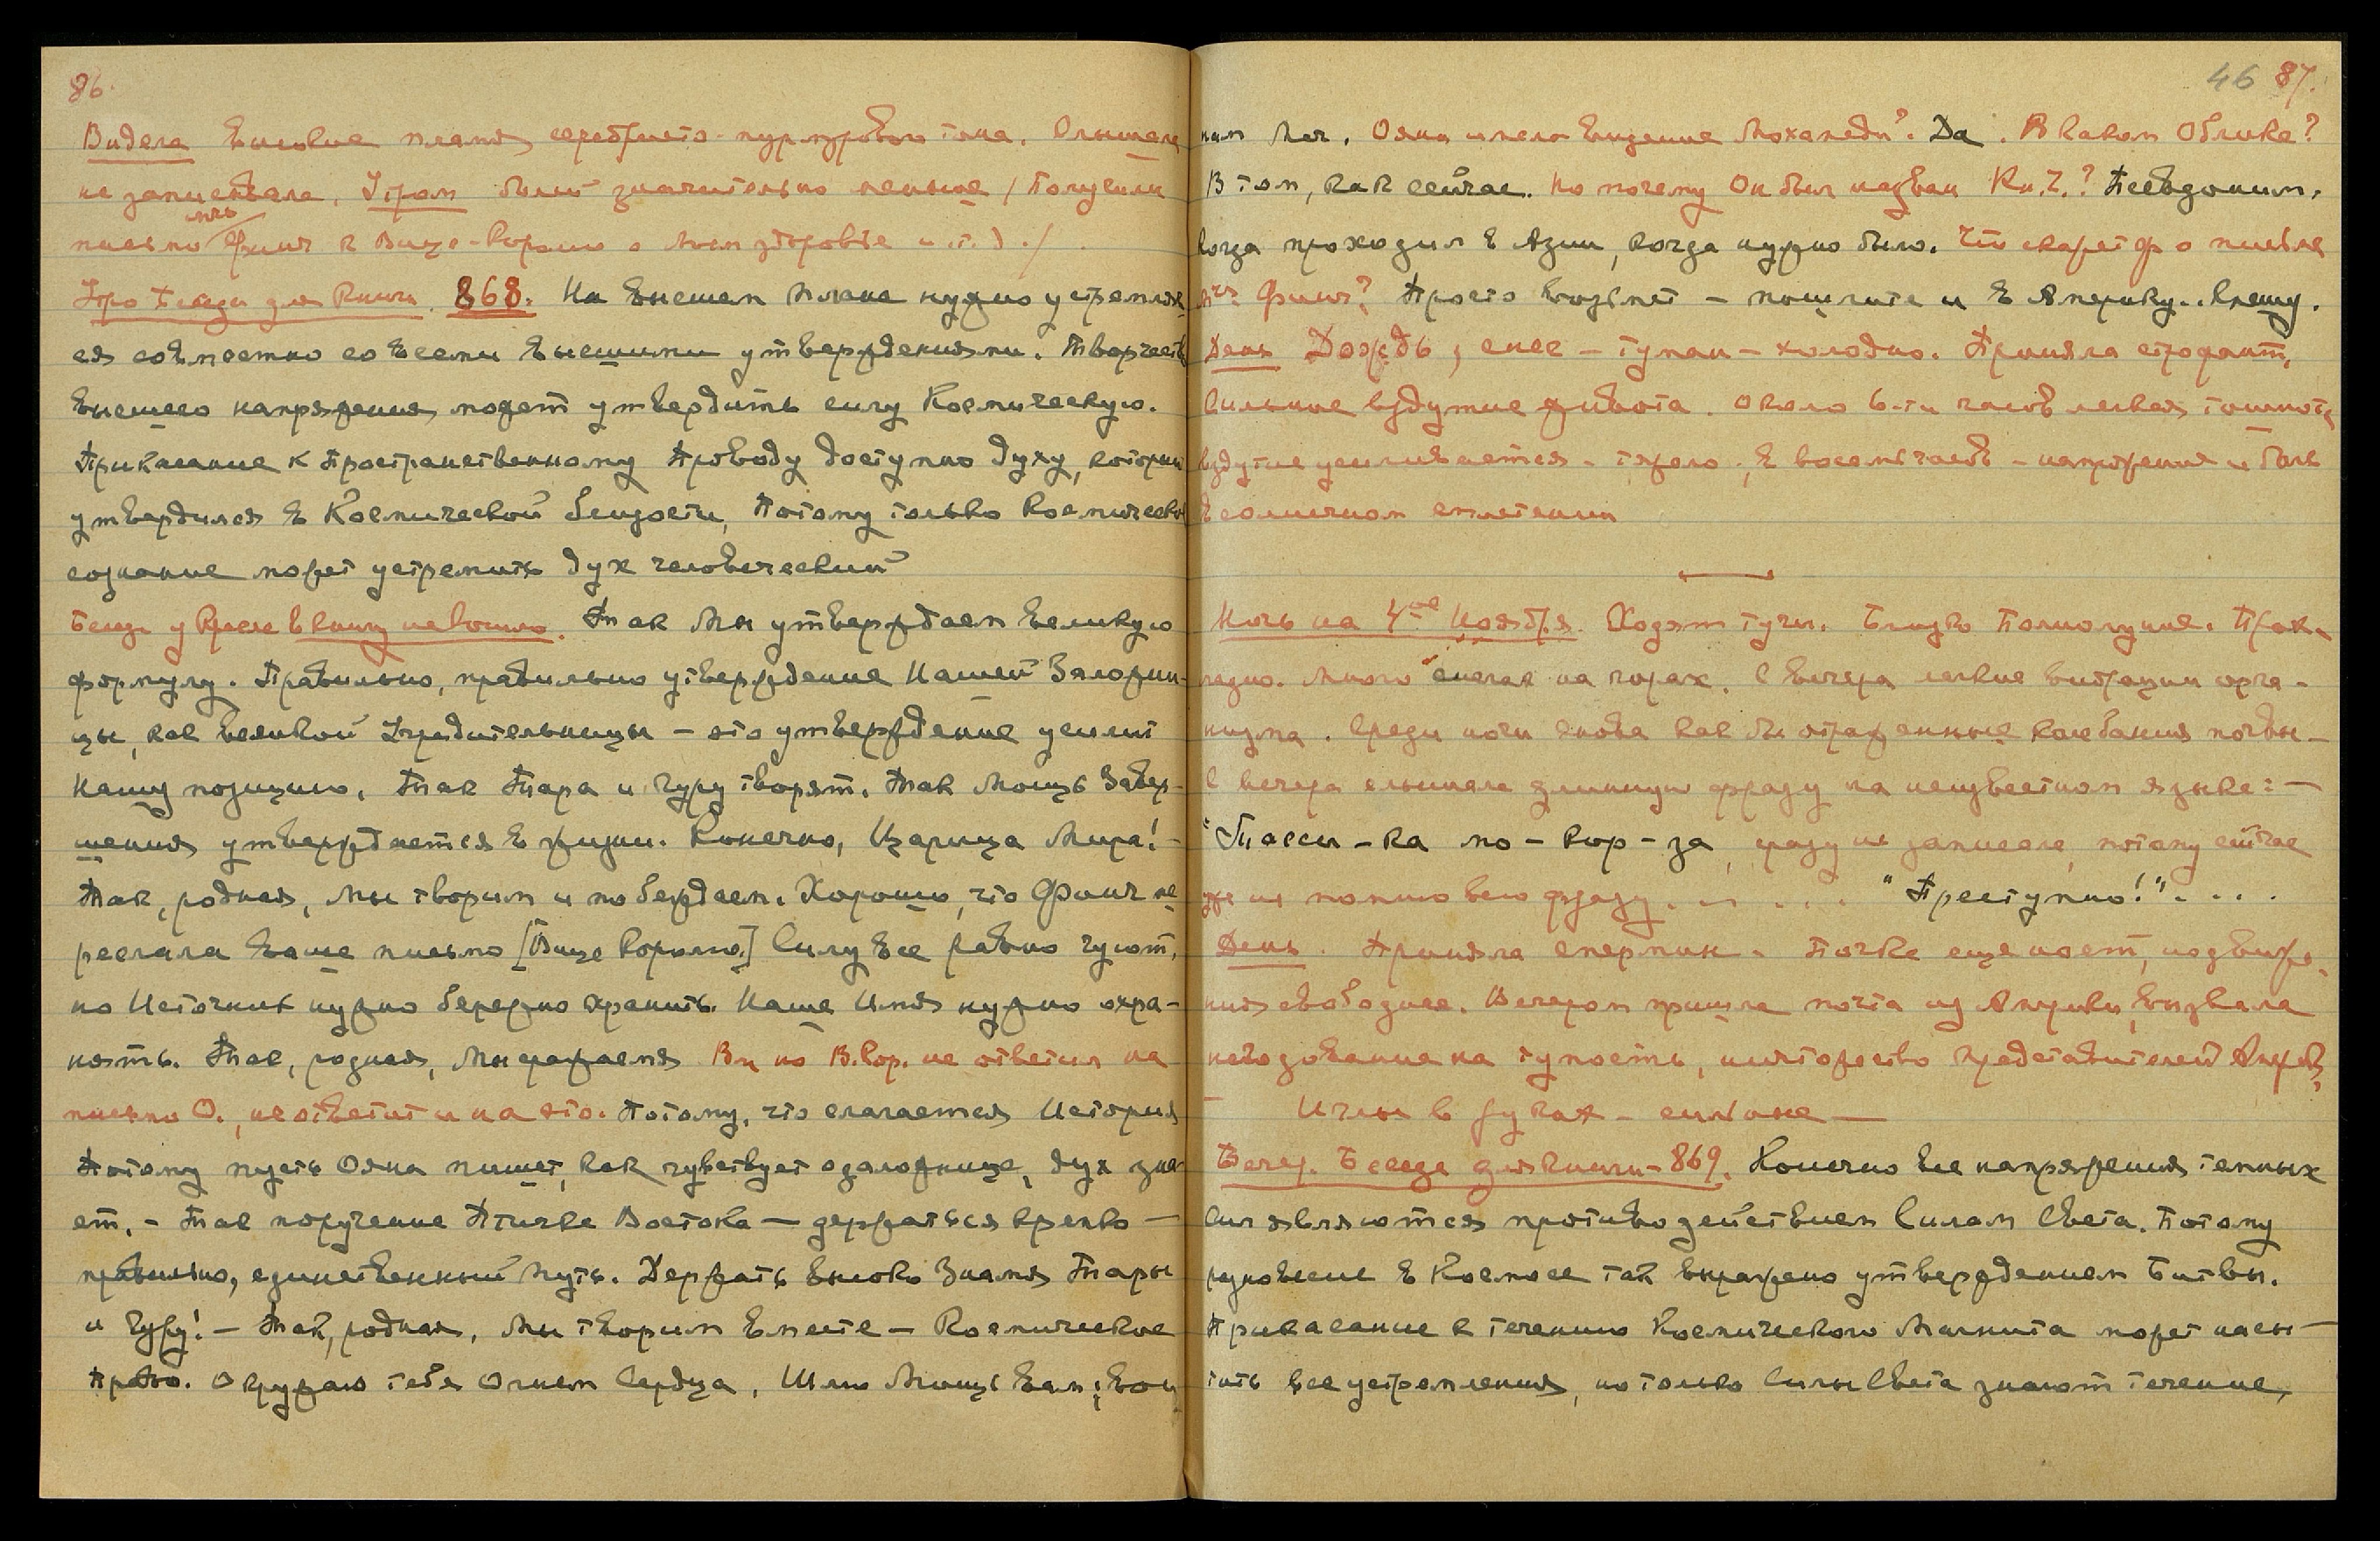 86.
Видела высокие пламя серебристо-пурпурового тона. Слышала
не записывала. Утром болей значительно меньше / Получили
письмо мисс Финч к Вице-Королю о моем здоровье и.т.д./
Утро Беседы для Книги. 868. На высшем плане нужно устремлять-
ся совместно со всеми высшими утверждениями. Творчество
высшего напряжения может утвердить силу Космическую.
Прикасание к Пространственному Проводу доступно духу, который
утвердился в Космической близости, Потому только Космическое
сознание может устремить дух человеческий
Беседа у Кресла в книгу не вошло. Так Мы утверждаем великую
формулу. Правильно, правильно утверждение Нашей Заложни-
цы, как великой Учредительницы – это утверждение усилит
Нашу позицию. Так Тара и Гуру творят. Так Мощь Завер-
шения утверждается в жизни. Конечно, Царица Мира! –
Так, родная, мы творим и побеждаем. Хорошо, что Финч пе-
реслала ваше письмо [Вице Королю.] Силу все равно чуют,
но Источник нужно бережно хранить. Наше Имя нужно охра-
нять. Так, родная, Мы сражаемся Вл но В.Кор. не ответил на
письмо О., не ответит и на это. Потому, что слагается История
Потому пусть Ояна пишет, как чувствует заложница, дух зна-
ет. – Так поручение Птичке Востока – держаться крепко –
правильно, единственный путь. Держать высоко Знамя Тары
и Гуру! – Так, родная, Мы творим вместе – Космическое
Право. Окружаю тебя Огнем Сердца, Шлю Мощь вам; вои
46 87.
ним Меч. Ояна имела видение Мохамеди? Да. В каком Облике?
В том, как сейчас. Но почему Он был назван Кн.Ч.? Псевдоним,
когда проходил в Азии, когда нужно было. Что скажет Ф о письме
Финч? Просто возьмет – пошлите и в Америку..
День Дождь, снег – туман – холодно. Приняла строфант,
Сильное вздутие живота. Около 6-ти часов легкая тошнота,
вздутие усиливается – тяжело, в восемь часов – напряжение и боль
в солнечном сплетении
Ночь на 4ое Ноября. Ходят тучи. Близко Полнолуние. Прох-
ладно. Много снега на горах. С вечера легкие вибрации орга-
низма. Среди ночи снова как бы отраженные колебания почвы –
С вечера слышала длинную фразу на неизвестном языке: –
"Тасси - ка мо - кор - за, сразу не записала, потому сейчас
уже не помню всю фразу. . . . . . "Преступно!". . . .
День. Приняла спермин. Почка еще ноет, но движе-
ния свободнее. Вечером пришла почта из Америки, вызвала
негодование на тупость, ничтожество представителей Америки,
– Иглы в руках – сильные –
Вечер. Беседа для книги – 869. Конечно все напряжения темных
сил являются противодействием Силам Света. Потому
равновесие в Космосе так выражено утверждением Битвы.
Прикасание к течению Космического Магнита может насы-
тить все устремления, но только Силы Света знают течение,